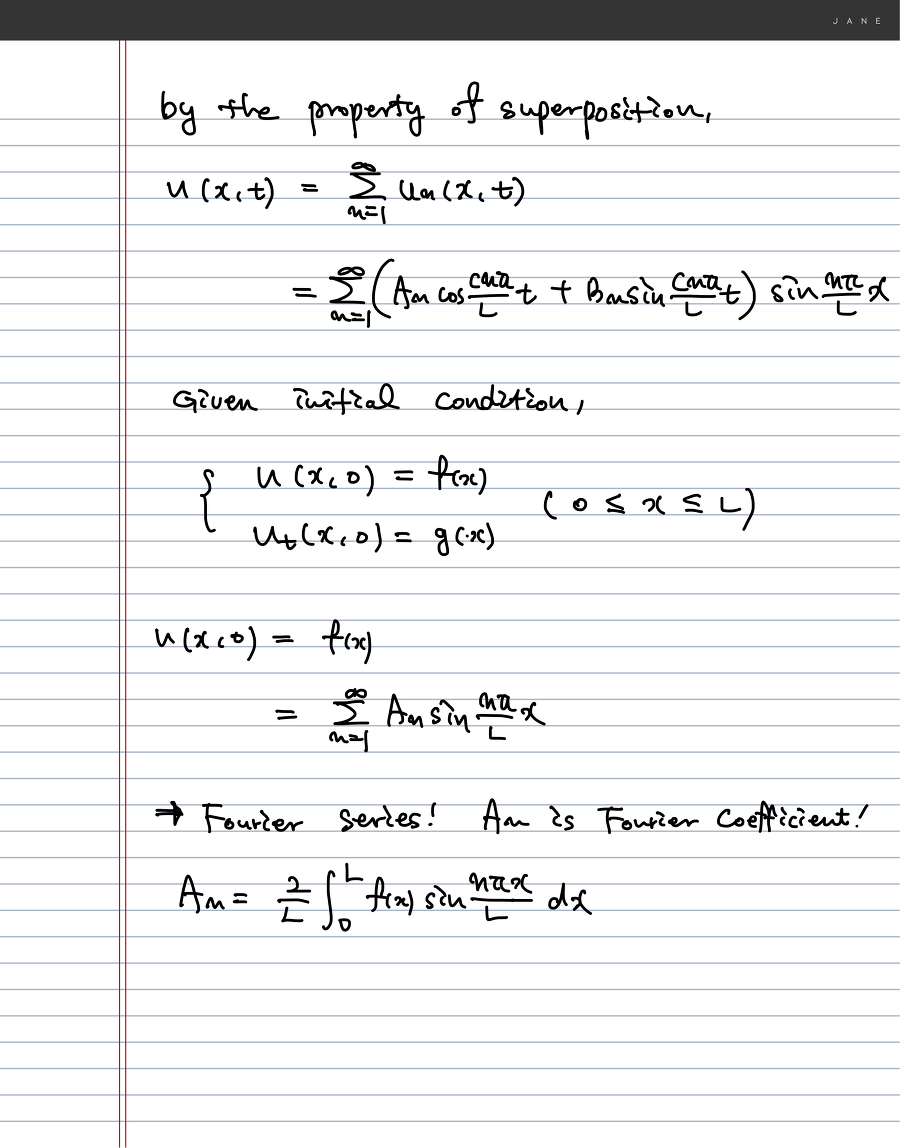 JANE
by the property of superposition,
u(x,t) = ∑_{n=1}^{∞} u_n(x,t)
= ∑_{n=1}^{∞} (A_n cos (cnπ/L) t + B_n sin (cnπ/L) t) sin (nπ/L) x
Given initial condition,
{ u(x,0) = f(x)
u_t(x,0) = g(x) (0 ≤ x ≤ L)
u(x,0) = f(x)
= ∑_{n=1}^{∞} A_n sin (nπ/L) x
→ Fourier series! A_n is Fourier Coefficient!
A_n = (2/L) ∫_0^L f(x) sin (nπx/L) dx